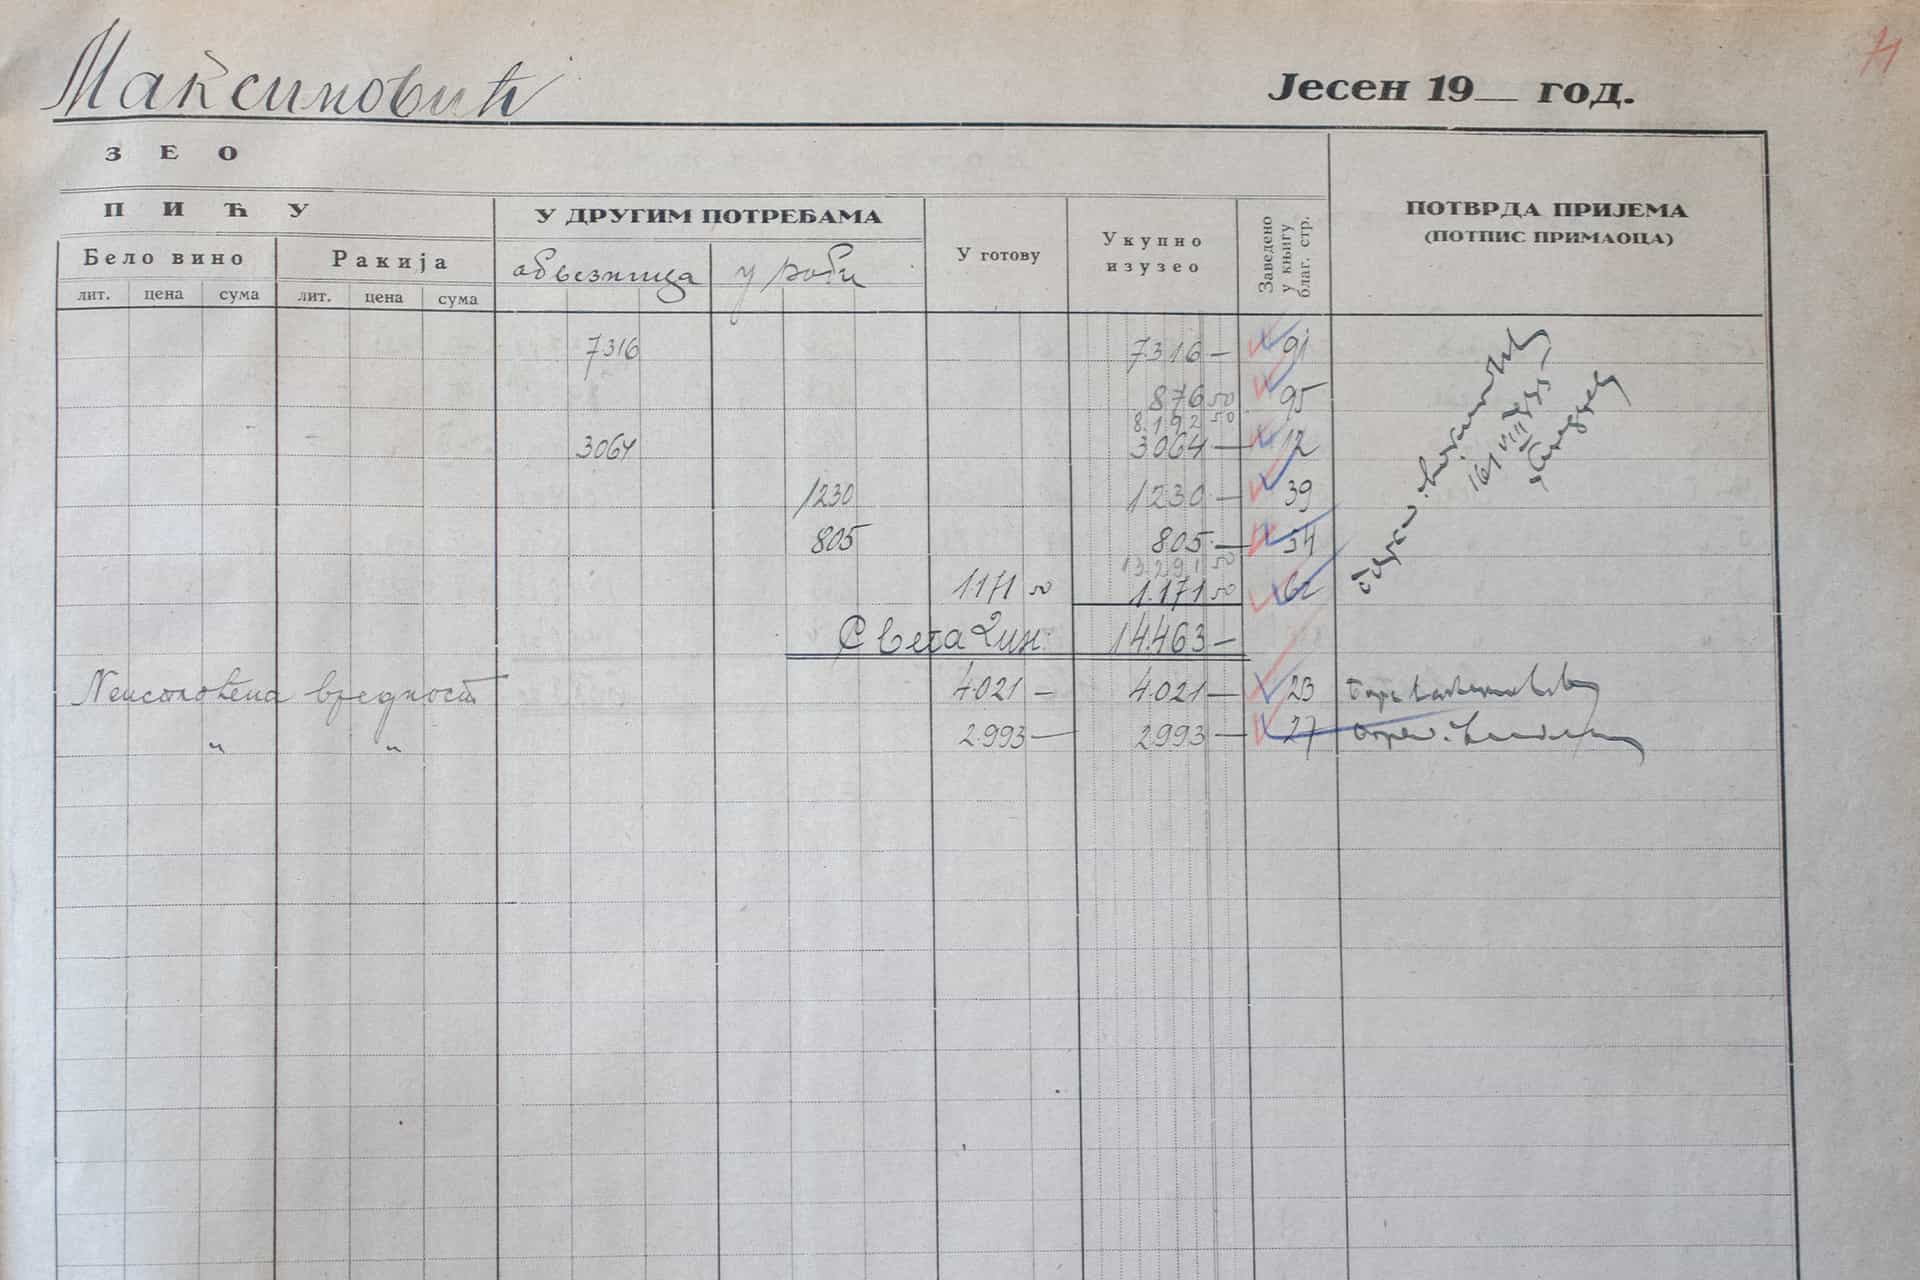 71
Максимовић
Јесен 19__ год.
ЗЕО
ПИЋУ
У ДРУГИМ ПОТРЕБАМА
У готову
Укупно изузео
Заведено у књигу благ. стр.
ПОТВРДА ПРИЈЕМА
(ПОТПИС ПРИМАОЦА)
Бело вино
Ракија
обвезница
у роби
лит. цена сума лит. цена сума
7316 7.316 — 91
876 50 95
8.192 50
3064 3064 — 12
1230 1230 — 39
805 805 — 54
13.291 50
1.171 50 1.171 50 62
Свега Дин. 14.463 —
Неисплоћена вредност 4.021 — 4.021 — 23
„ „ 2.993 — 2993 — 27